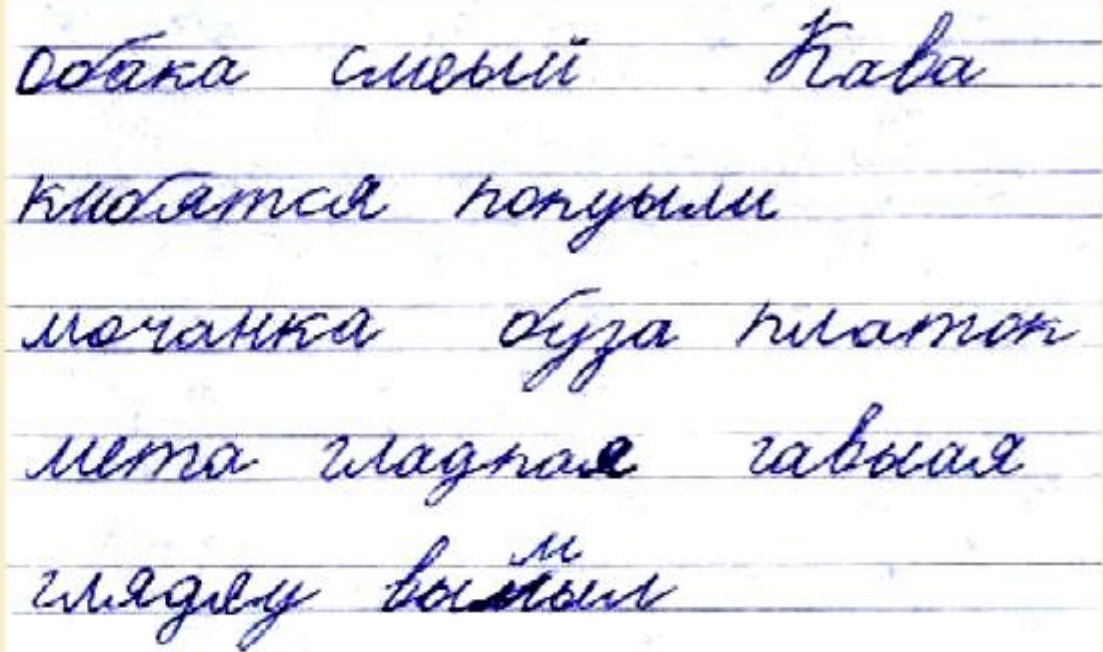 обака смеый Кава
кмобятся попуыли
мочанка обуза платок
мета гладкая гавыая
глядяу вымыл